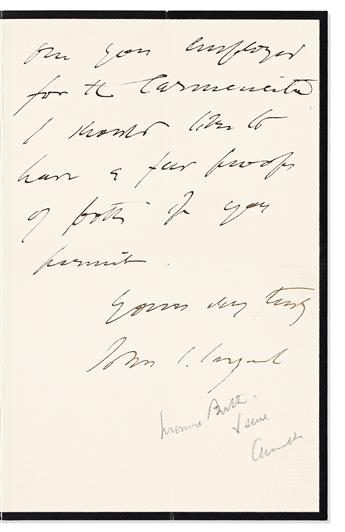 one you employed
for the Carmencita
I should like to
have a few proofs
of both if you
permit.
Yours very truly
John S. Sargent